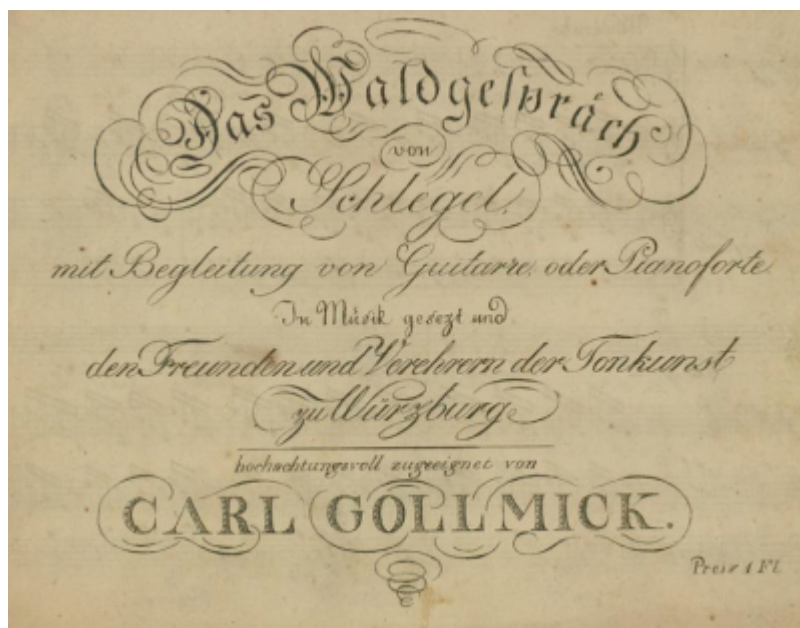 Das Waldgespräch
von
Schlegel,
mit Begleitung von Guitarre, oder Pianoforte
In Musik gesezt und
den Freunden und Verehrern der Tonkunst
zu Würzburg
hochachtungsvoll zugeeignet von
CARL GOLLMICK.
Preis 1 Fl